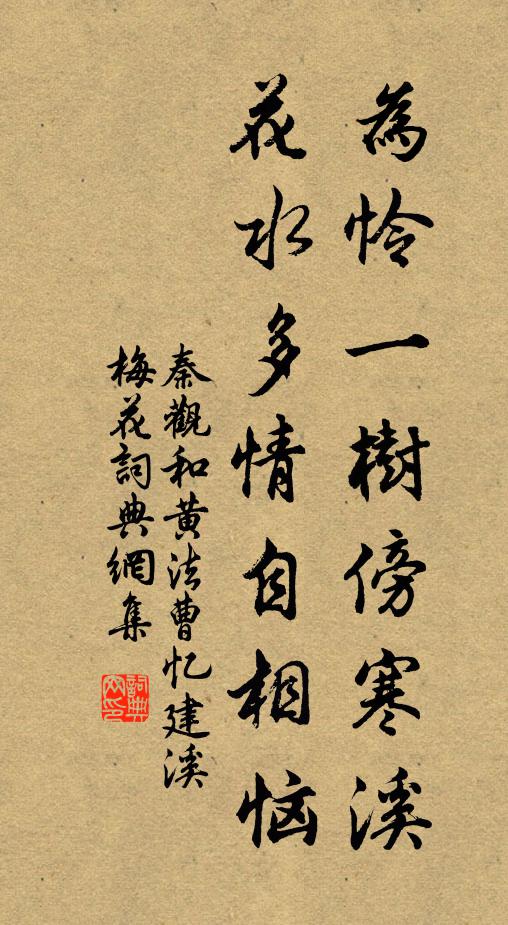 為怜一樹傍寒溪
花水多情自相恼
秦觀和黄法曹忆建溪
梅花詞典網集